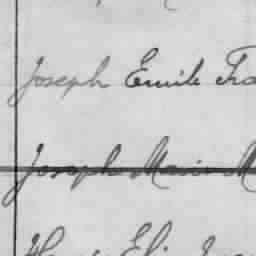 Joseph Emile Fra
Joseph Marie M